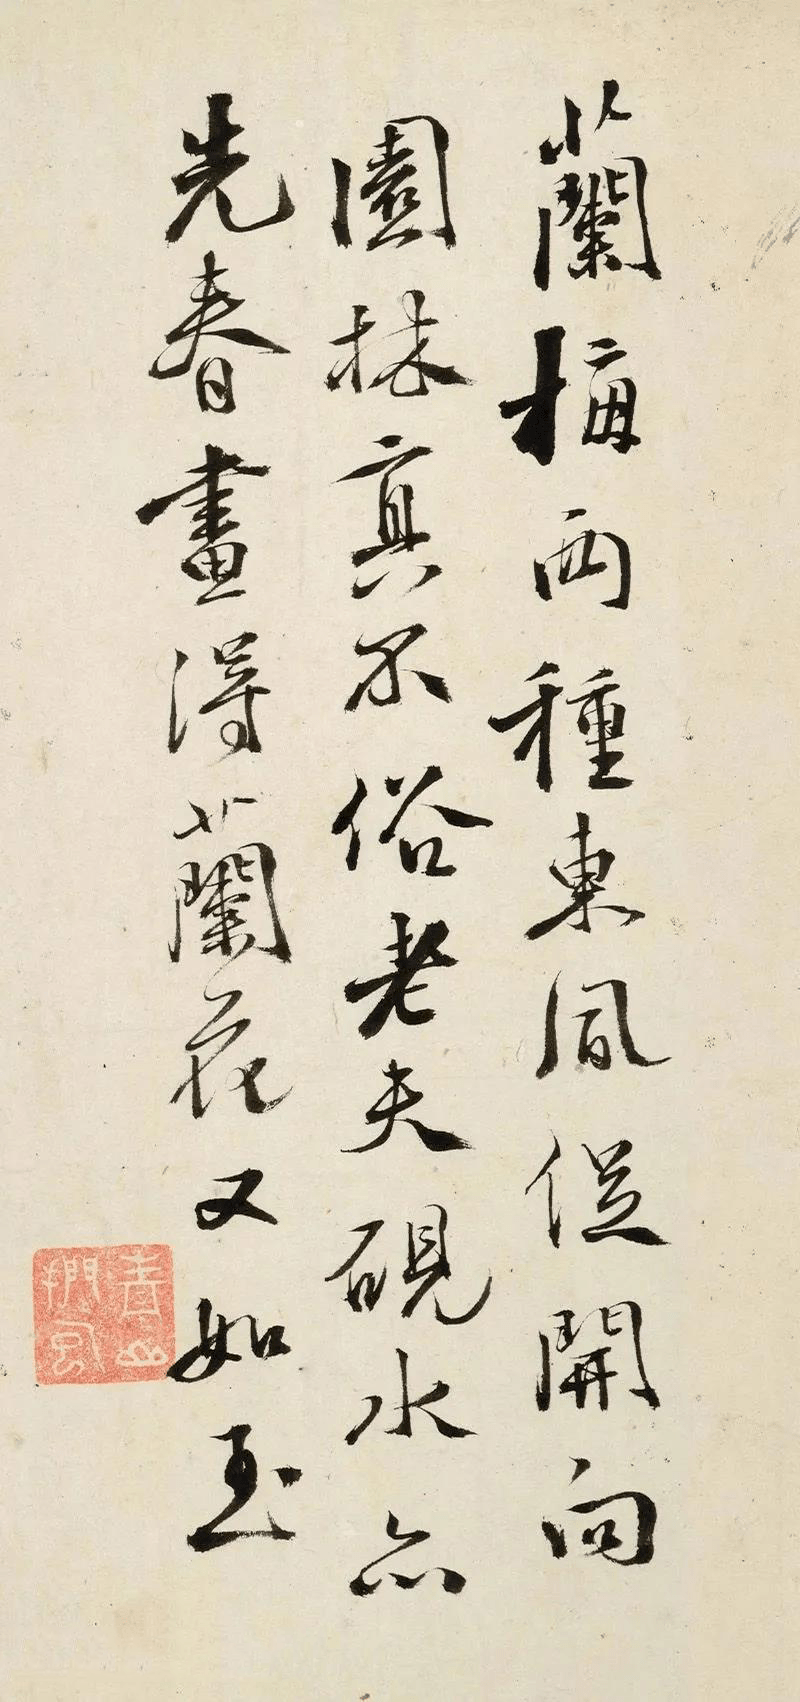 蘭梅兩種東風促開向
園林真不俗老夫硯水亦
先春畫得蘭花又如玉